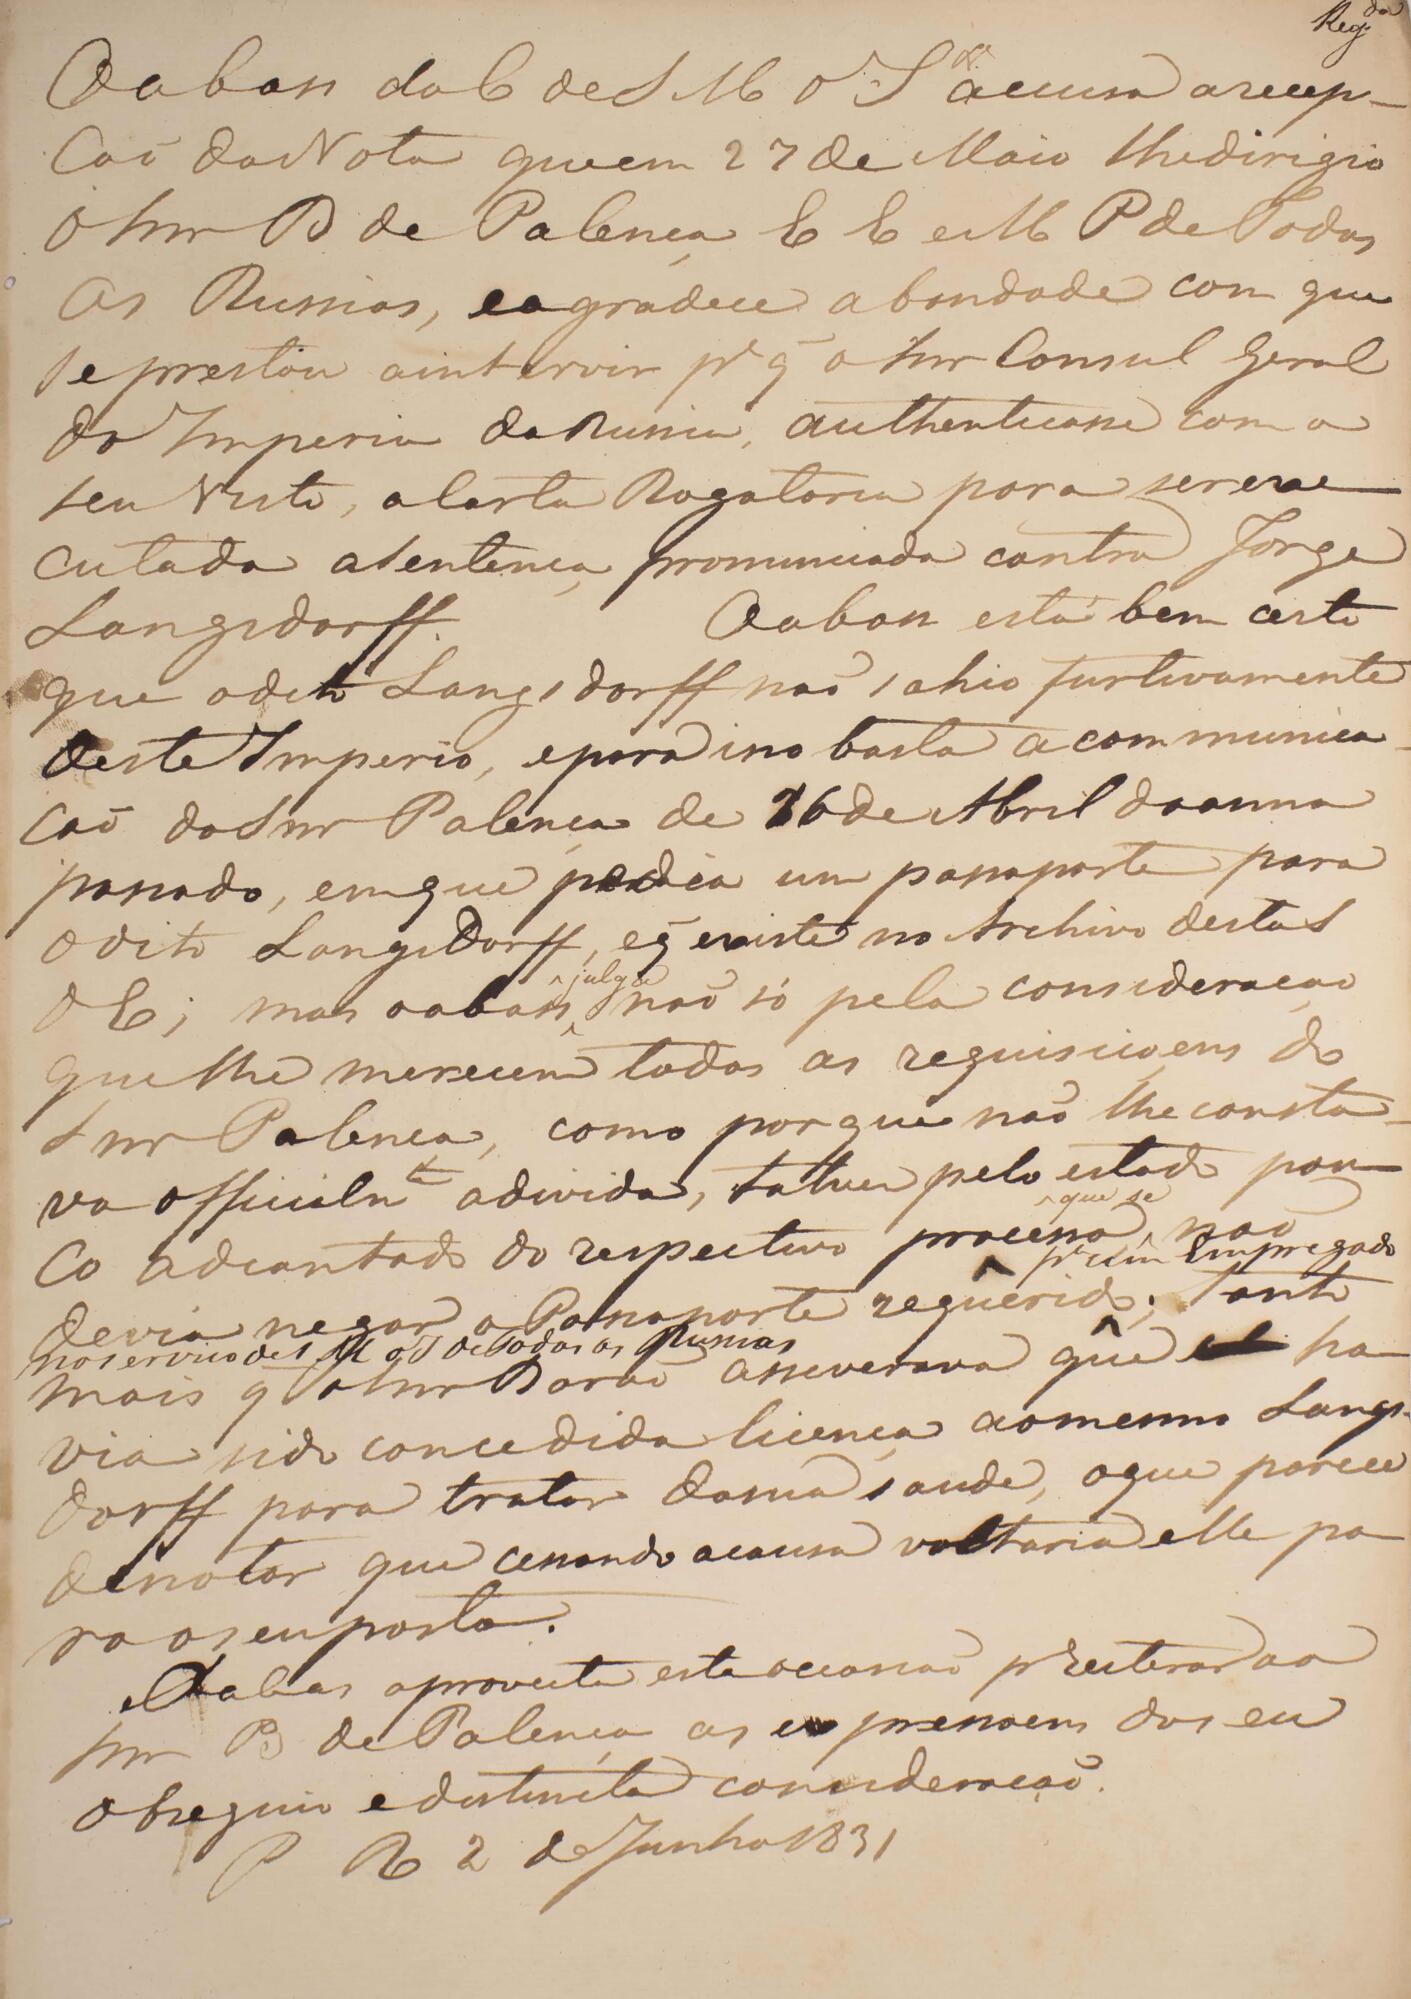 Reg.da
O abass do C de S M O I accusa a recep-
ção da Nota que em 27 de Maio lhe dirigio
o Snr B de Palença E E e M P de Todas
As Russias, e agradece a bondade com que
se prestou a intervir pr q̃ o Snr Consul Geral
do Imperio da Russia, authenticasse com o
seu Visto, a Carta Rogatoria para ser exe
cutada a sentença pronunciada contra Jorge
Langsdorff. O abass está bem certo
que o dito Langsdorff não sahio furtivamente
deste Imperio, e para isso basta a communica-
ção do Snr Palença de 26 de Abril do anno
passado, em que pedia um passaporte para
o dito Langsdorff, e q̃ existe no Archivo desta S
d E; mas o abass julga não só pela consideração
que lhe merecem todas as requisiçoens do
Snr Palença, como porque não lhe consta-
va officialm.te a divida, talvez pelo estado pou-
co adeantado do respectivo processo, que se não
devia negar o Passaporte requerido pr um Empregado
no serviço de S M o I de Todas as Russias; tanto
mais q̃ o Snr Barão asseverava que ha-
via sido concedida licença ao mesmo Langs-
dorff para tratar da sua saude, o que parece
denotar que cessando a causa voltaria elle pa-
ra o seu posto.
O abass aproveita esta occasião pr reiterar ao
Snr B de Palença as expressoens do seu
obsequio e distincta consideração.
P R 2 de Junho 1831